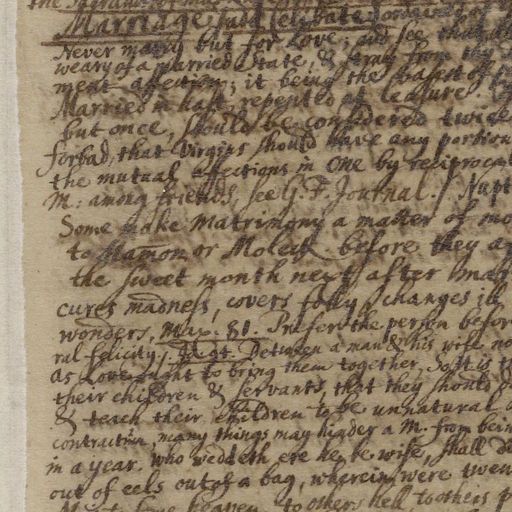 the Sacrament of
Marriage and Celibate ordained of
Never marry but for Love; and see that
weary of a married State, & stray from thy
ment affection; it being the basest of
Married in hast, repented at leasure
but once, should be considered twice
forbad, that Virgins should have any portion
the mutual affections in one by reciproca
M: among friends, see G. F. Journal. / Nupt
Some make Matrimony a matter of mo
to Mamon or Moleck before they a
the sweet month next after mar
cures madness, covers folly, changes ill
wonders, Max. 81. Prefer the person befor
ral felicity. Between a man & his wife no
As Love ought to bring them together, So it is th
their children & servants, that they should
& teach their children to be unnatural
contraction, many things may hinder a M. from bein
in a year. Who weddeth ere he be wise, shall di
out of eels out of a bag, wherein were twen
to others hell, to others p